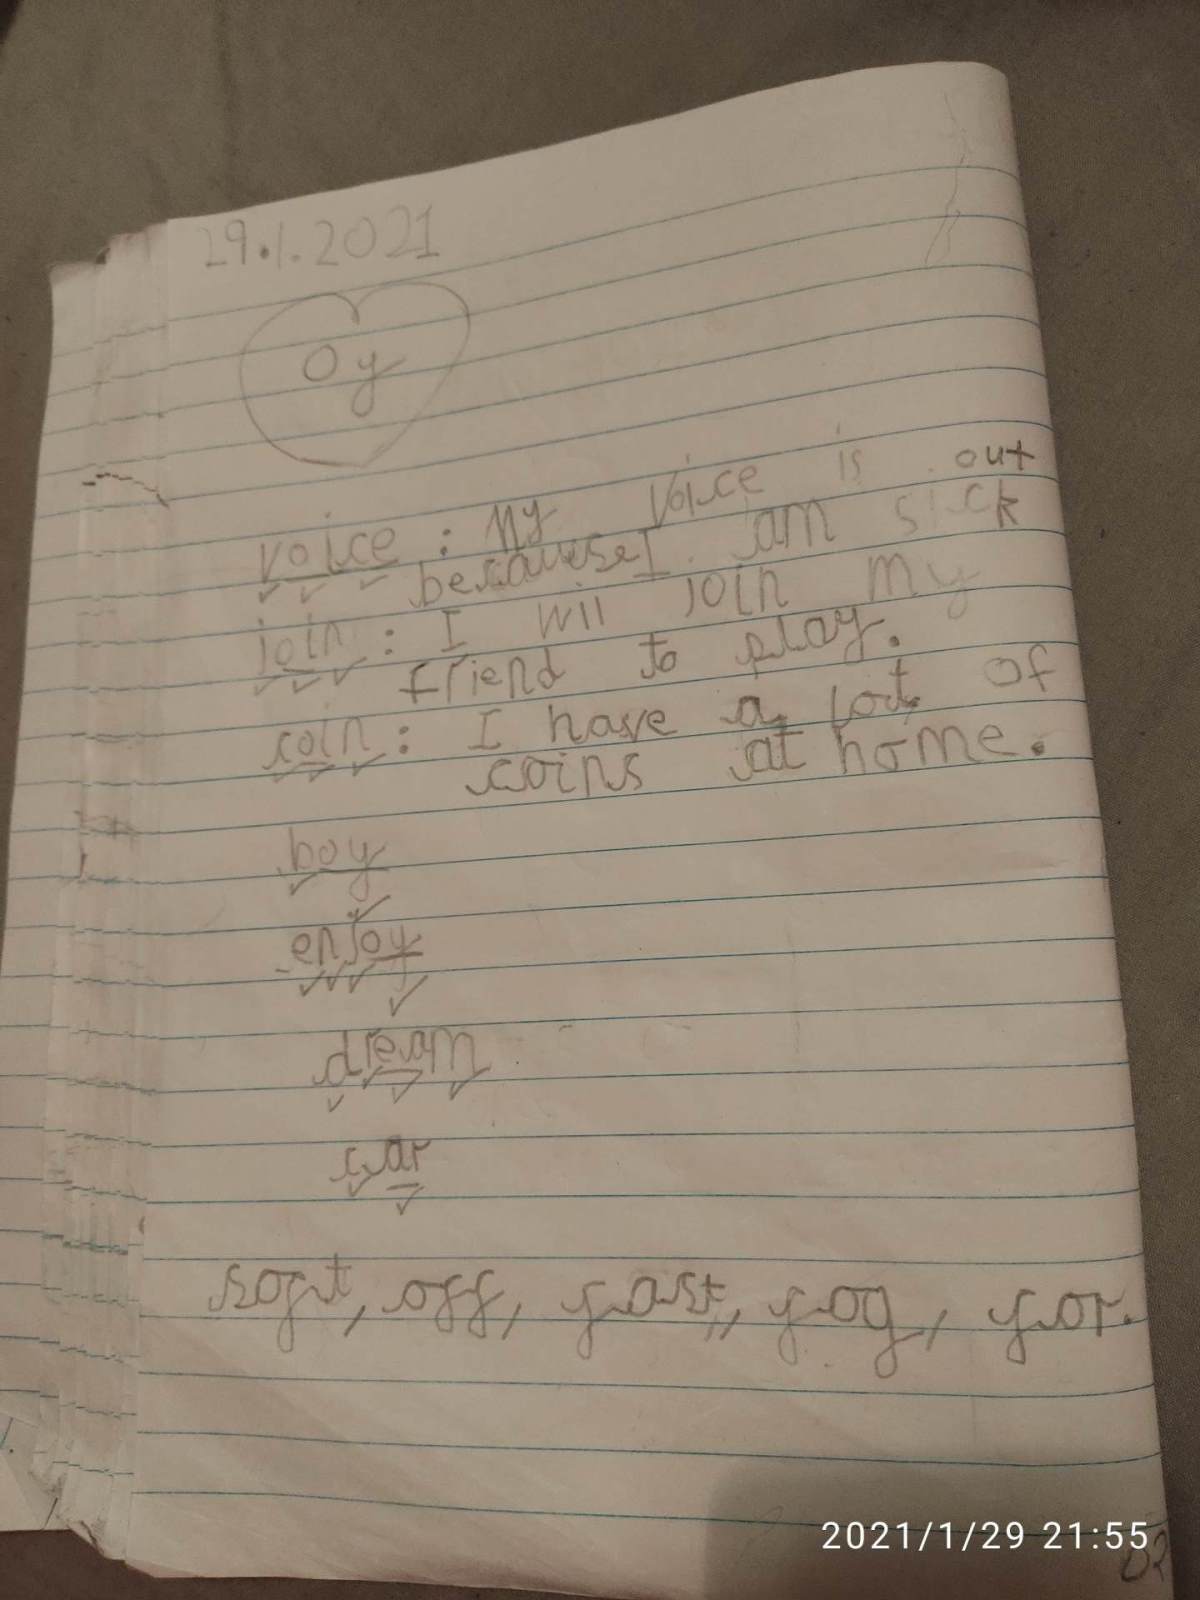 29.1.2021
oy
voice : My voice is out
because I am sick
join : I will join my
friend to play.
coin : I have a lot of
coins at home.
boy
enjoy
dream
car
soft, off, fast, fog, for.
2021/1/29 21:55